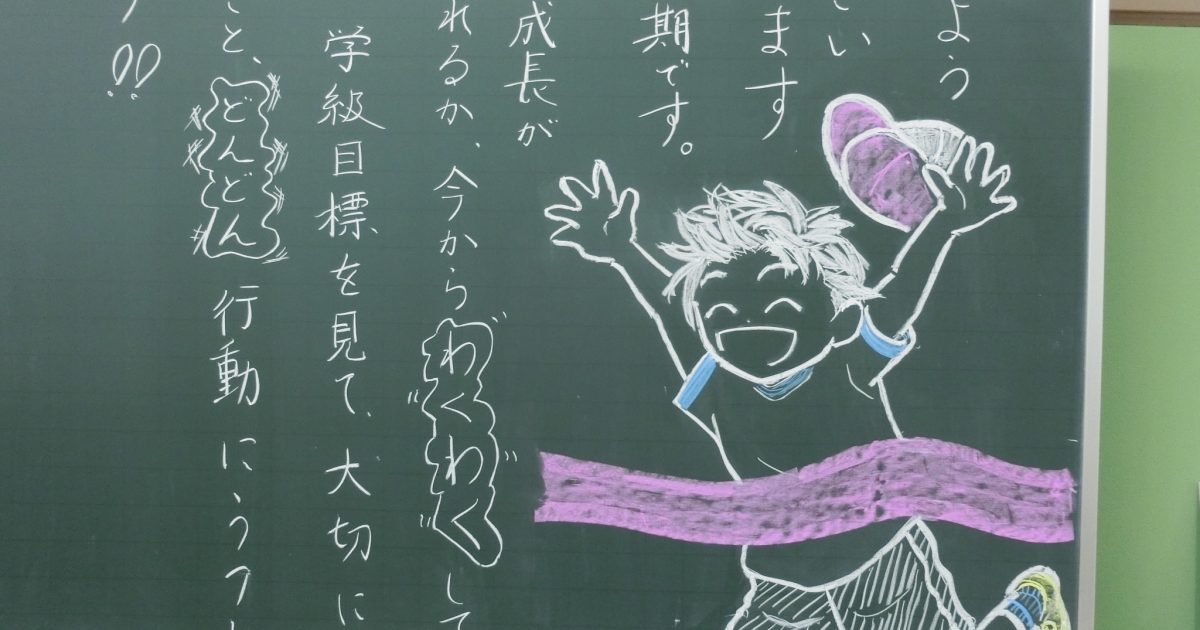 よう
い
ます
期です。
成長が
れるか、今からわくわくして
学級目標を見て、大切に
と、どんどん行動にうつ
!!